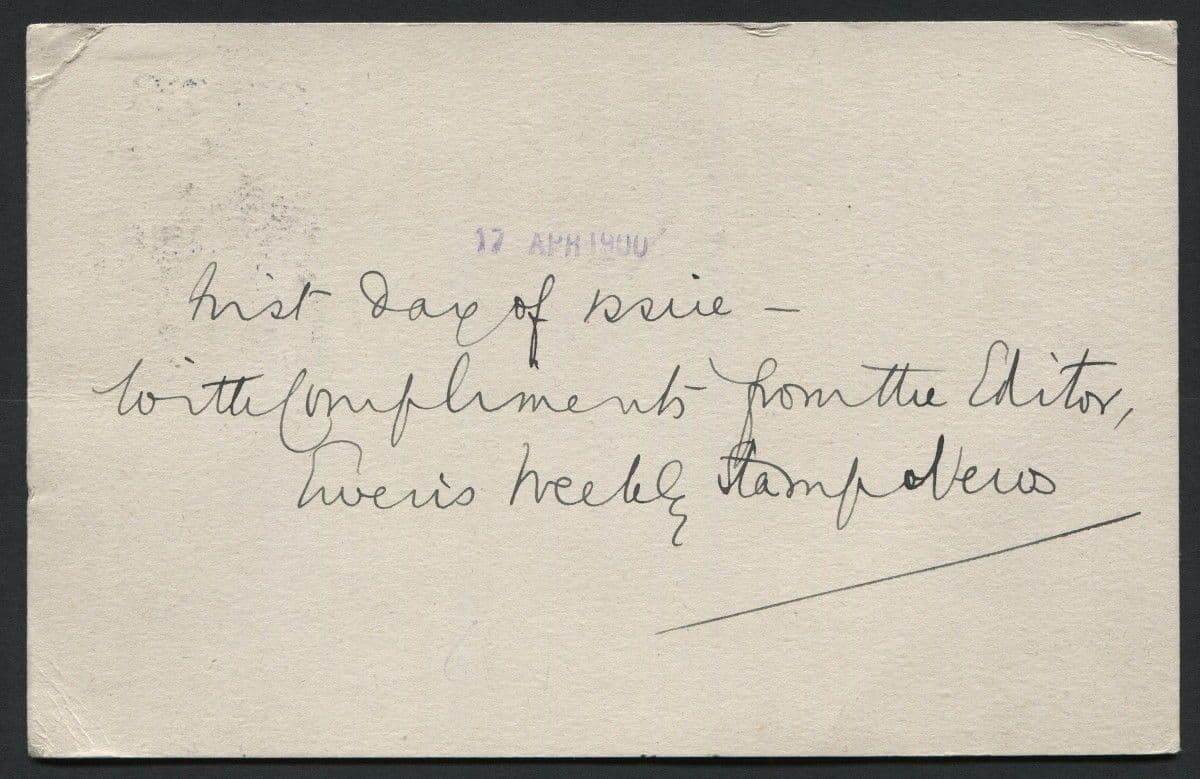 17 APR 1900
First Day of issue –
With Compliments from the Editor,
Ewen's Weekly Stamp News